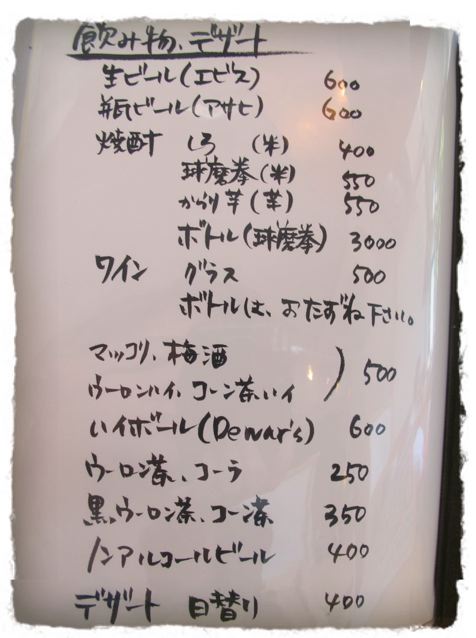 飲み物、デザート
生ビール(エビス) 600
瓶ビール(アサヒ) 600
焼酎 しろ (米) 400
球磨拳(米) 550
からり芋(芋) 550
ボトル(球磨拳) 3000
ワイン グラス 500
ボトルは、おたずね下さい。
マッコリ、梅酒
ウーロンハイ、コーン茶ハイ ) 500
ハイボール(Dewar's) 600
ウーロン茶、コーラ 250
黒ウーロン茶、コーン茶 350
ノンアルコールビール 400
デザート 日替り 400